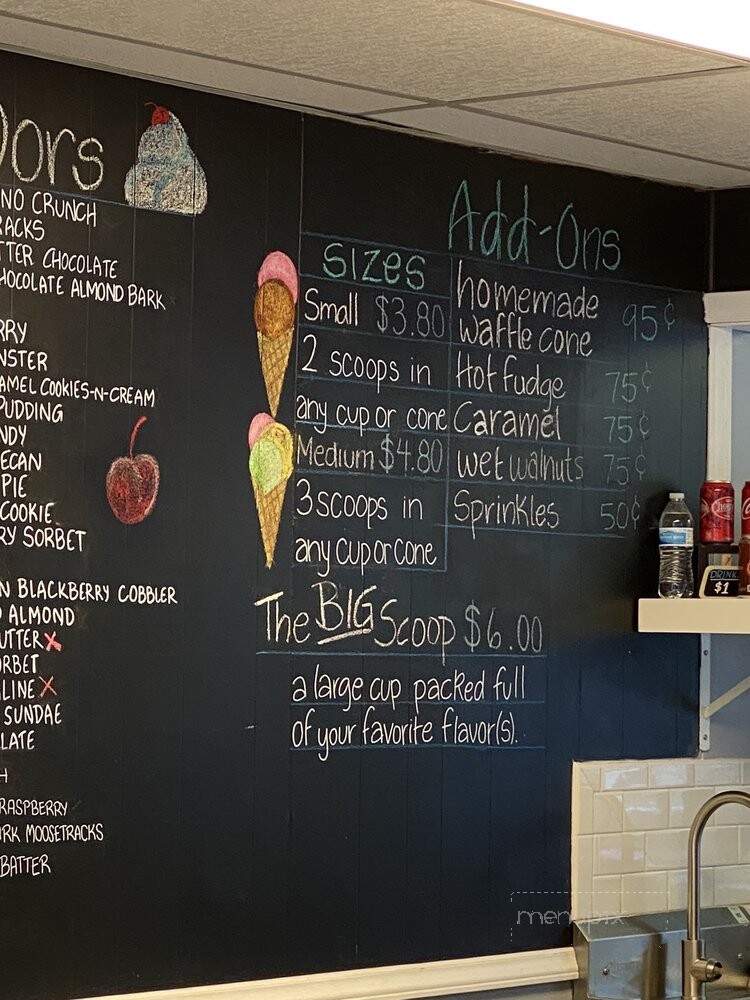 ors
NO CRUNCH
RACKS
TTER CHOCOLATE
HOCOLATE ALMOND BARK
RRY
NSTER
AMEL COOKIES-N-CREAM
PUDDING
NDY
ECAN
PIE
COOKIE
RY SORBET
N BLACKBERRY COBBLER
ALMOND
UTTER X
RBET
LINE X
SUNDAE
LATE
H
RASPBERRY
RK MOOSETRACKS
BATTER
sizes
Small $3.80
2 scoops in
any cup or cone
Medium $4.80
3 scoops in
any cup or cone
Add-Ons
homemade
waffle cone 95¢
Hot fudge 75¢
Caramel 75¢
wet walnuts 75¢
Sprinkles 50¢
The BIG Scoop $6.00
a large cup packed full
of your favorite flavor(s).
DRINK
$1
menupix